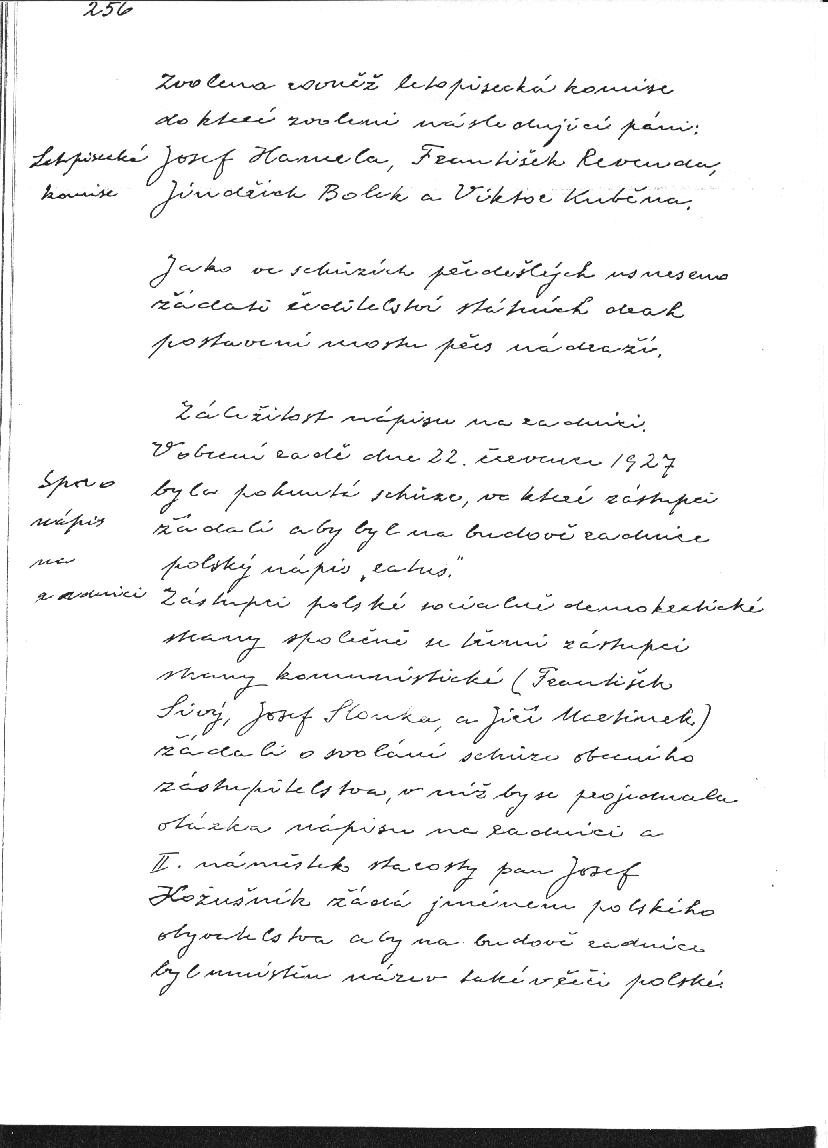 256
zvolena rovněž letopisecká komise
do které zvoleni následující páni:
Letopisecká
komise
Josef Hamela, František Revenda,
Jindřich Bolek a Viktor Kuběna.
Jako ve schůzích předešlých usneseno
žádati ředitelství státních drah
postavení mostu přes nádraží.
Záležitost nápisu na radnici.
V obecní radě dne 22. července 1927
Spor o
nápis
na
radnici
byla pohnutá schůze, ve které zástupci
žádali aby byl na budově radnice
polský nápis „ratus."
Zástupci polské sociálně demokratické
strany společně se třemi zástupci
strany komunistické (František
Sivý, Josef Slonka, a Jiří Martinek)
žádali o svolání schůze obecního
zástupitelstva, v níž by se projednala
otázka nápisu na radnici a
II. náměstek starosty pan Josef
Hožušník žádá jménem polského
obyvatelstva aby na budově radnice
byl umístěn název také v řeči polské.